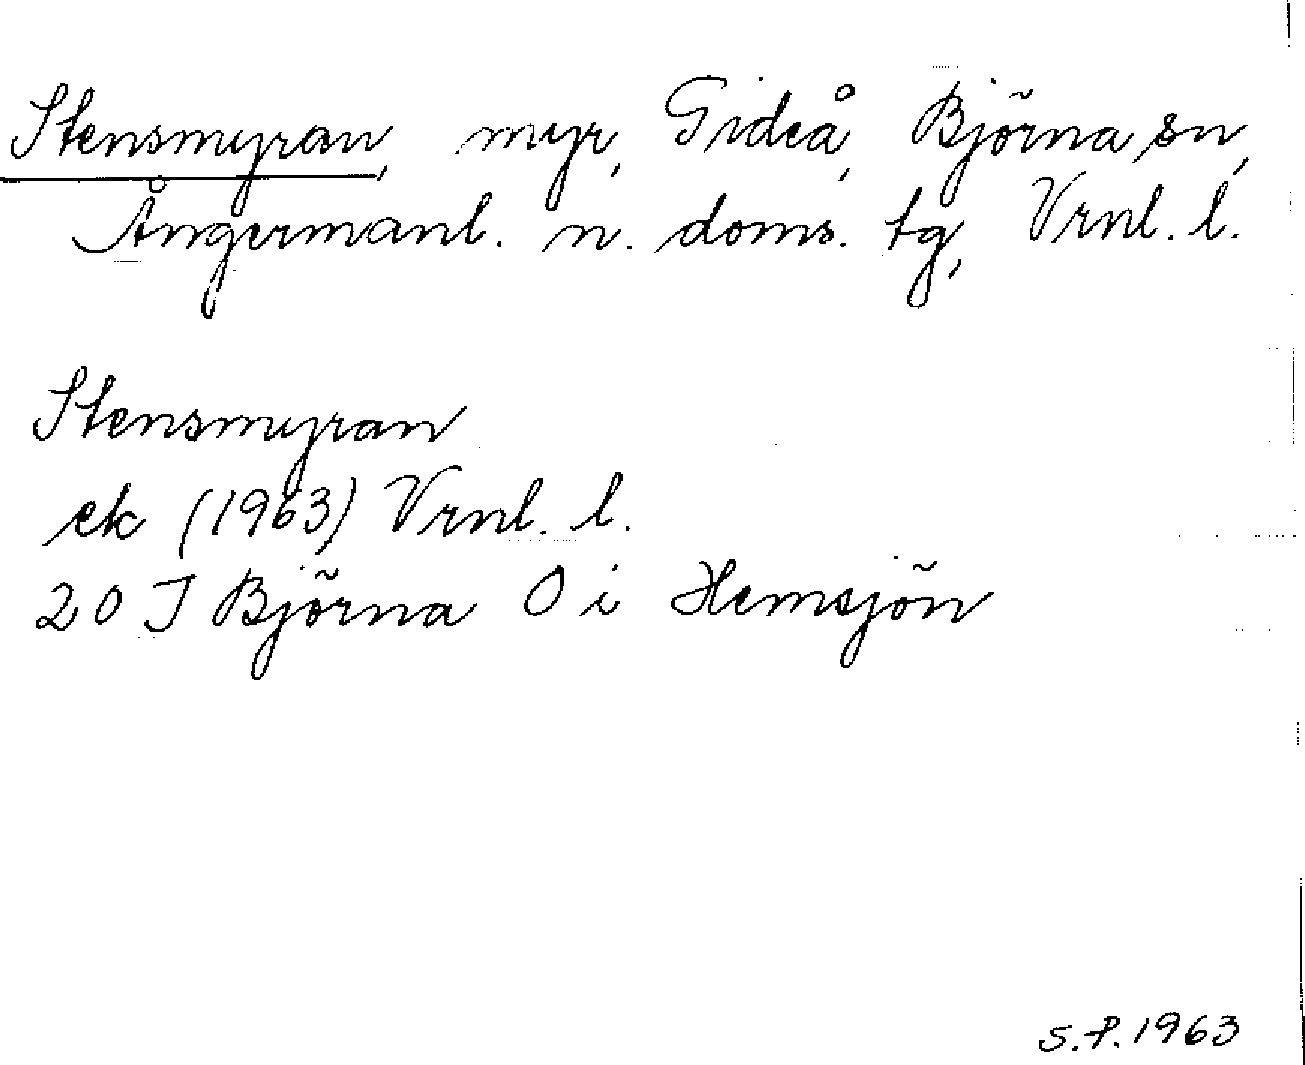 Stensmyran, myr, Gideå, Björna sn,
Ångermanl. n. doms. tg, Vrnl. l.
Stensmyran
ek (1963) Vrnl. l.
20 J Björna O i Hemsjön
S.P. 1963